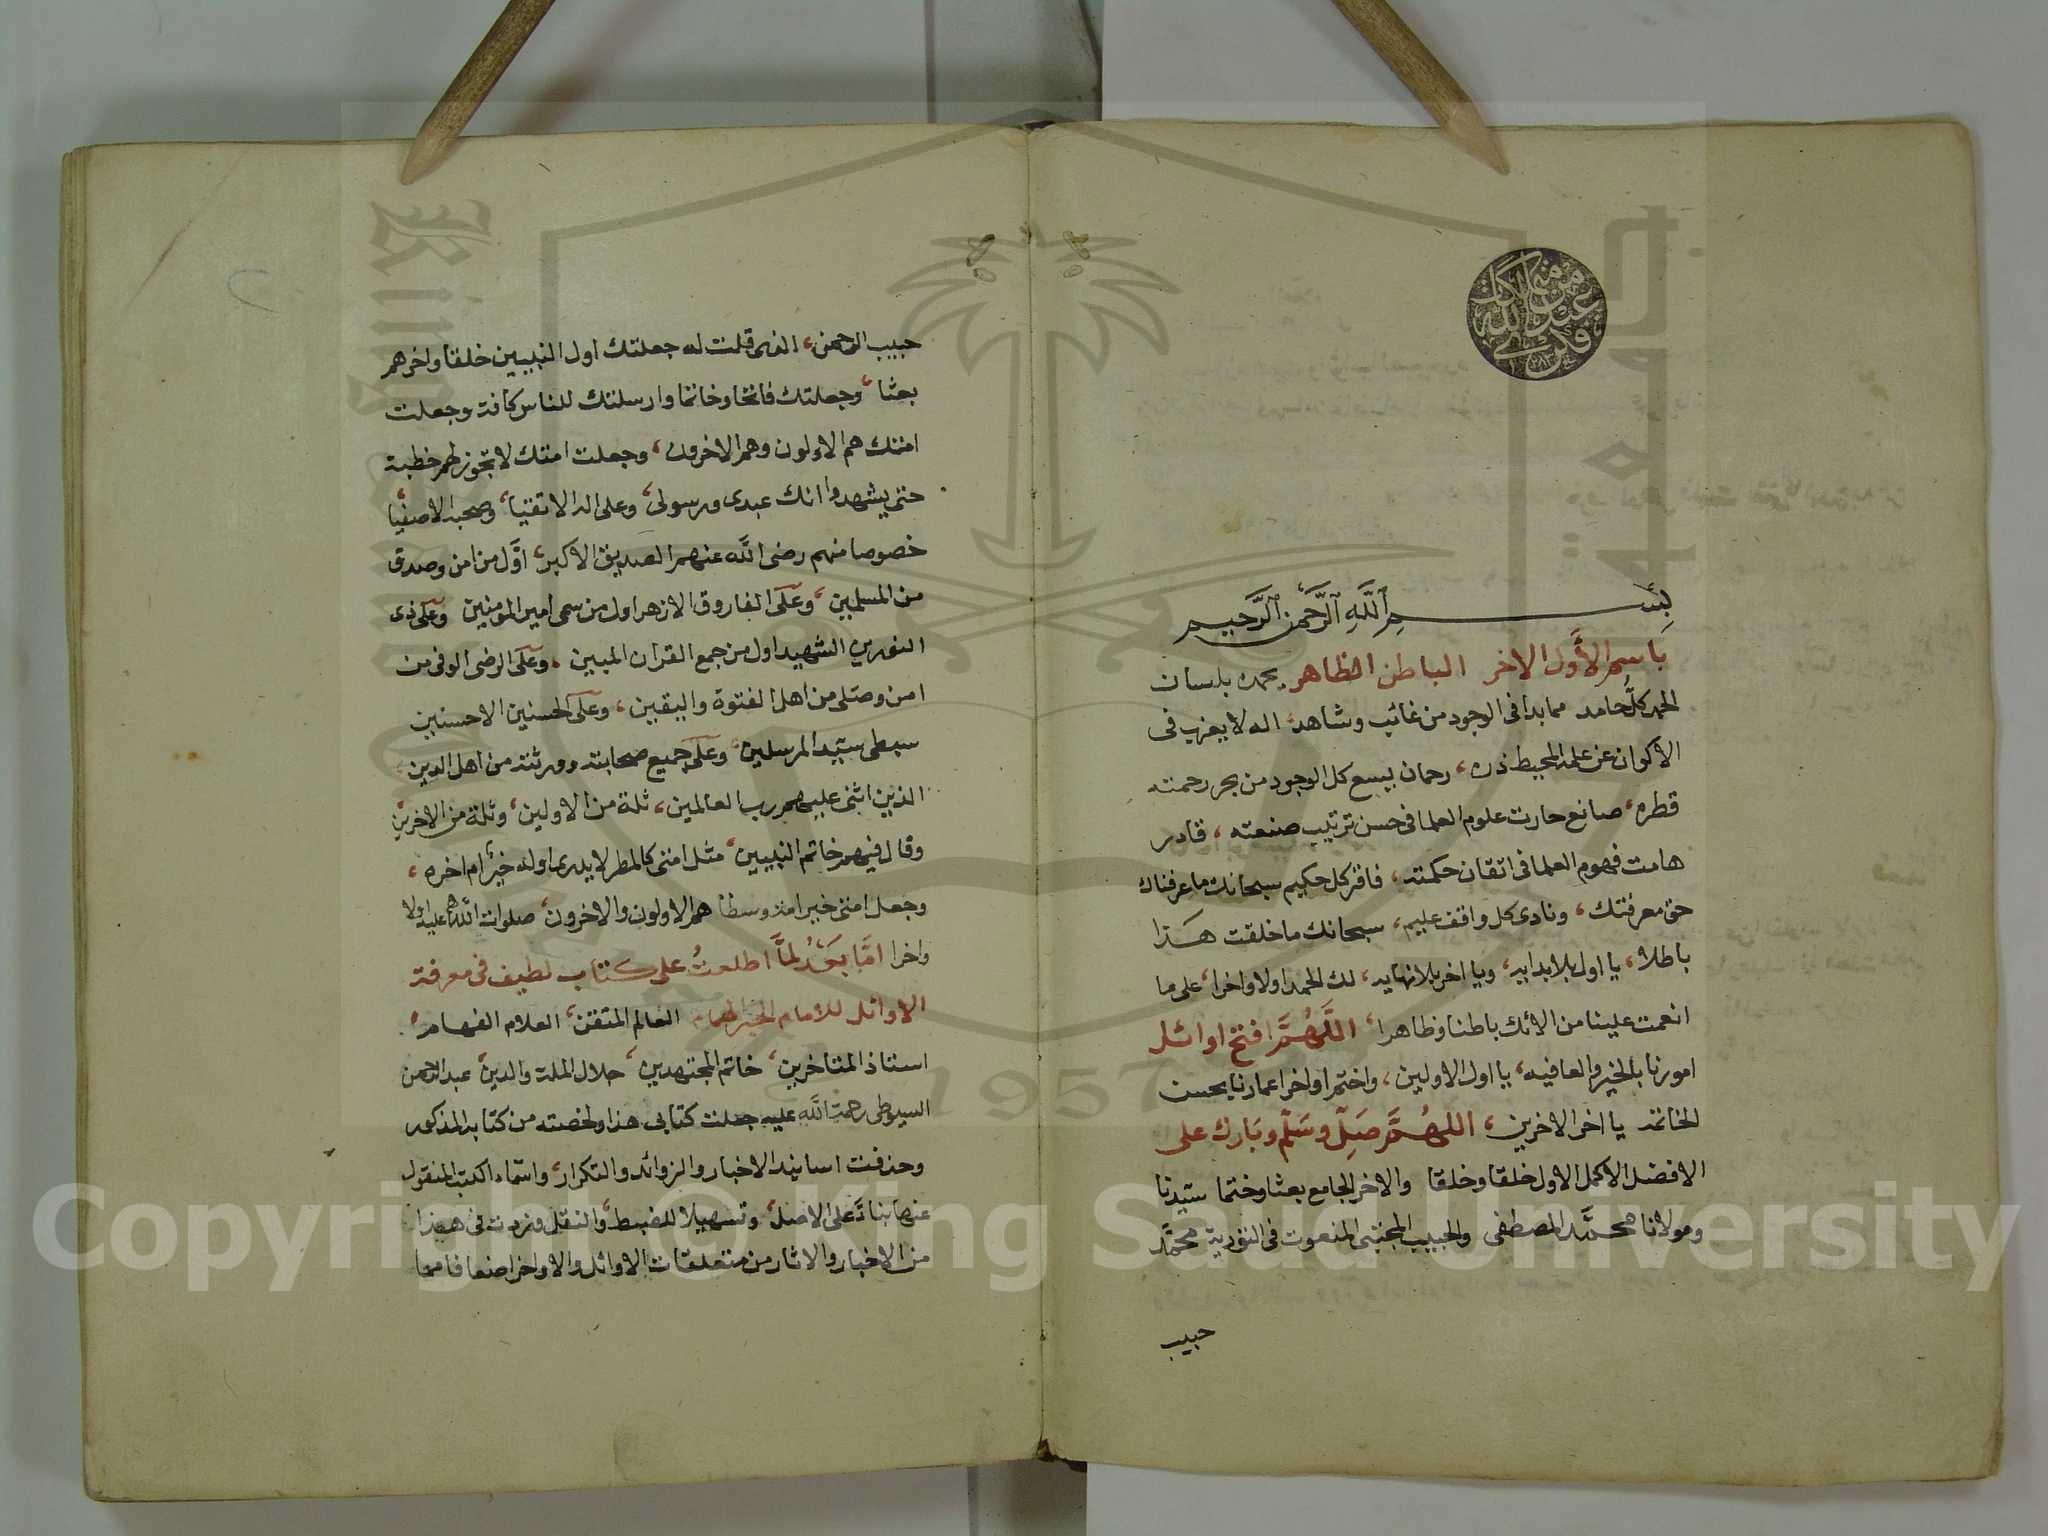 بسم الله الرحمن الرحيم
باسم الأول الاخر الباطن الظاهر يحمده بلسان
الحمد كل حامد مما بدا في الوجود من غائب وشاهد، اله لا يعزب في
الاكوان عن علمه المحيط ذره، رحمان يسع كل الوجود من بحر رحمته
قطره، صانع حارت علوم العلما في حسن ترتيب صنعته، قادر
هامت فهوم العلما في اتقان حكمته، فاقر كل حكيم سبحانك ما عرفناك
حق معرفتك، ونادى كل واقف عليم، سبحانك ما خلقت هذا
باطلا، يا اول بلا بدايه، ويا اخر بلا نهايه، لك الحمد اولا واخرا، على ما
انعمت علينا من الائك باطنا وظاهرا، اللهم افتح اوائل
امورنا بالخير والعافيه، يا اول الاولين، واختم اواخر اعمارنا بحسن
الخاتمه يا اخر الاخرين، اللهم صل وسلم وبارك على
الافضل الاكمل الاول خلقا وخلقا والاخر الجامع بعثا وختما سيدنا
ومولانا محمد المصطفى والحبيب المجتبى المنعوت في التورية محمد
حبيب
حبيب الرحمن، الذى قلت له جعلتك اول النبيين خلقا واخرهم
بعثا، وجعلتك فاتحا وخاتما وارسلتك للناس كافة وجعلت
امتك هم الاولون وهم الاخرون، وجعلت امتك لا تجوز لهم خطبة
حتى يشهدوا انك عبدى ورسولى، وعلى اله الاتقيا، وصحبه الاصفيا،
خصوصا منهم رضى الله عنهم الصديق الاكبر، اول من امن وصدق
من المسلمين، وعلى الفاروق الازهر اول من سمى امير المومنين وعلى ذى
النورين الشهيد اول من جمع القران المبين، وعلى الرضى الوفى من
امن وصلى من اهل الفتوة واليقين، وعلى الحسنين الاحسنين
سبطى سيد المرسلين، وعلى جميع صحابته وورثته من اهل الدين،
الذين اثنى عليهم رب العالمين، ثلة من الاولين، وثلة من الاخرين،
وقال فيهم خاتم النبيين، مثل امتى كالمطر لا يدرى اوله خير ام اخره،
وجعل امتى خير امة وسطا هم الاولون والاخرون، صلوات الله عليه اولا
واخرا اما بعد لما اطلعت على كتاب لطيف في معرفة
الاوائل للامام الخبر الهمام العالم المتقن، العلام الفهام،
استاذ المتاخرين، خاتم المجتهدين، جلال الملة والدين، عبد الرحمن
السيوطى رحمة الله عليه جعلت كتابى هذا ولخصته من كتابه المذكور
وحذفت اسانيد الاخبار والزوائد والتكرار، واسماء الكتب المنقول
عنها بناء على الاصل، وتسهيلا للضبط، والنقل وزدت في هذا
من الاخبار والاثار من متعلقات الاوائل والاواخر اضعافا مما
Copyright © King Saud University
1957